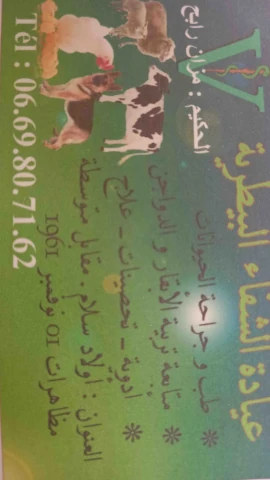 عيادة الشفاء البيطرية
الحكيم : مزان رابح
* طب و جراحة الحيوانات
* متابعة تربية الأبقار و الدواجن
* ادوية - تحصينات - علاج
العنوان : اولاد سلام. مقابل متوسطة
مظاهرات 01 نوفمبر 1961
Tél : 06.69.80.71.62